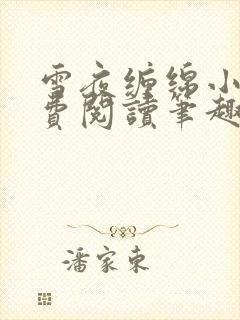 雪夜缠绵小
費閱讀筆趣
潘家東